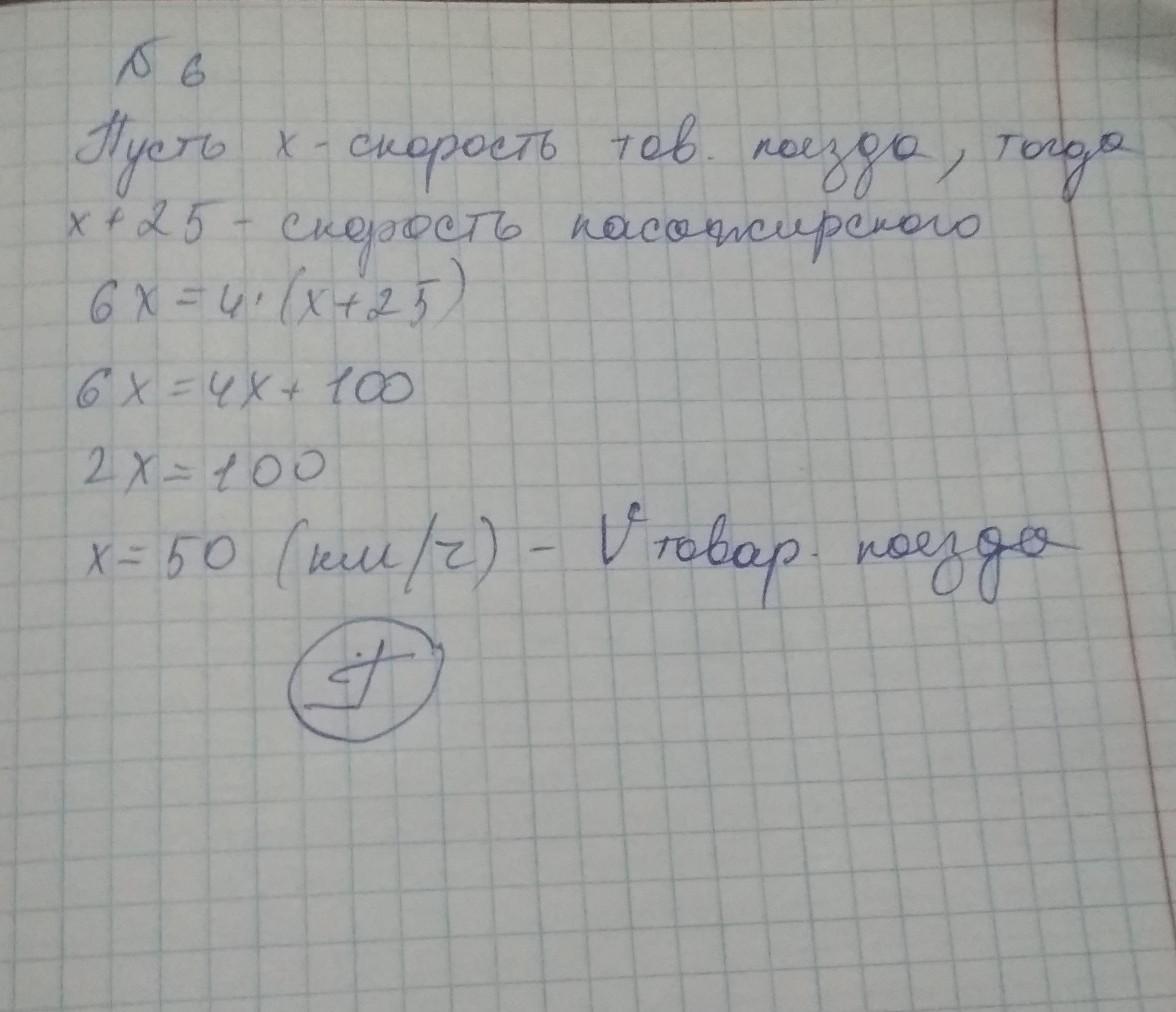 № 6
Пусть х - скорость тов. поезда, тогда
х + 25 - скорость пасажирского
6х = 4 · (х + 25)
6х = 4х + 100
2х = 100
х = 50 (км/ч) - V товар. поезда